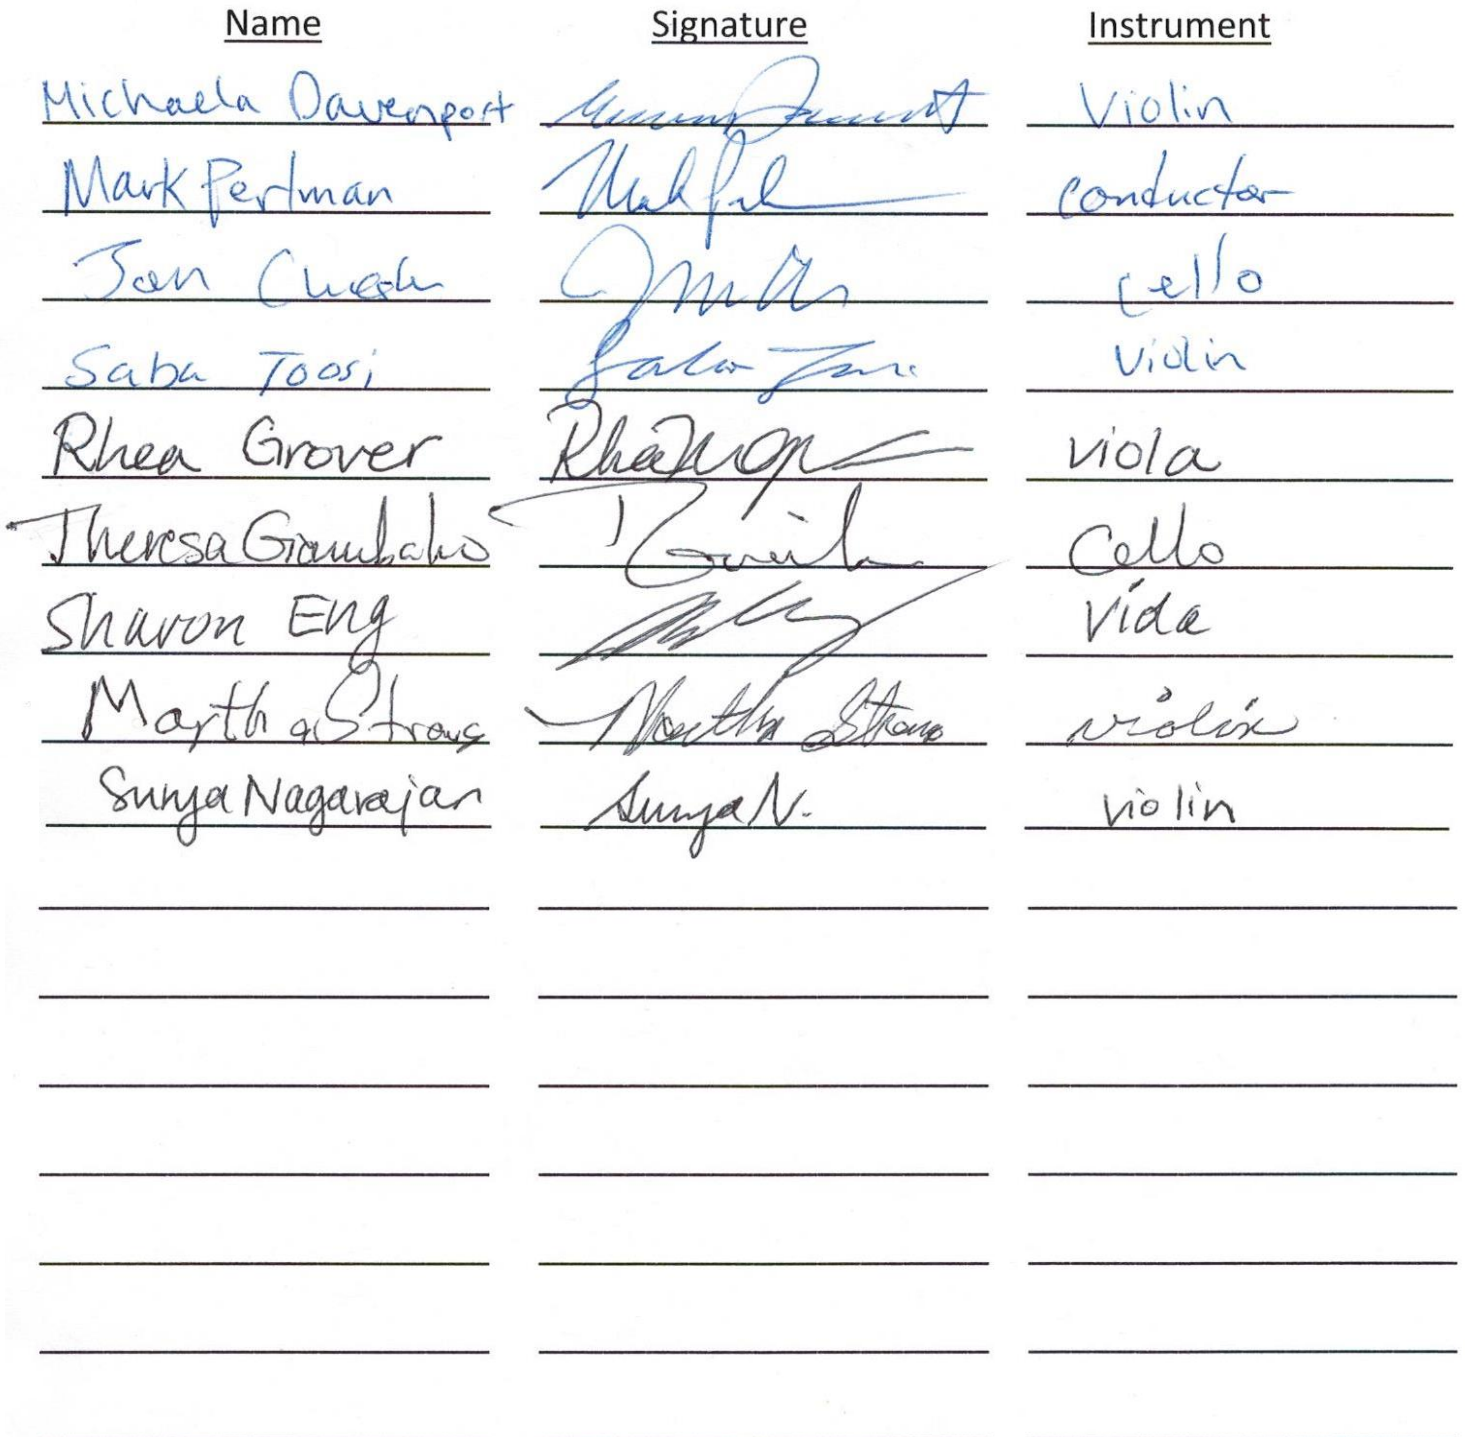 Name Signature Instrument
Michaela Davenport Violin
Mark Perlman Mark conductor
Jan cello
Saba Toosi Saba violin
Rhea Grover Rhea viola
Theresa Cello
Sharon Eng viola
Martha Strong Martha violin
Surya Nagarajan Surya N. violin